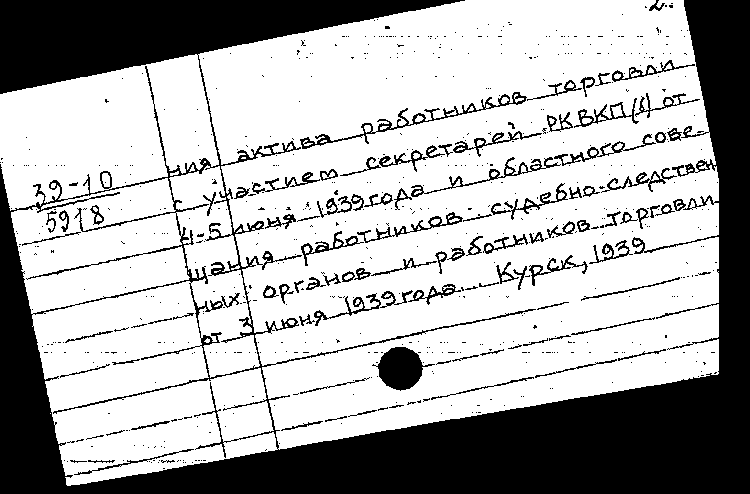 2.
39-10
5918
ния актива работников торговли
с участием секретарей РКВКП(б) от
4-5 июня 1939 года и областного сове-
щания работников судебно-следствен
ных органов и работников торговли
от 3 июня 1939 года. Курск, 1939